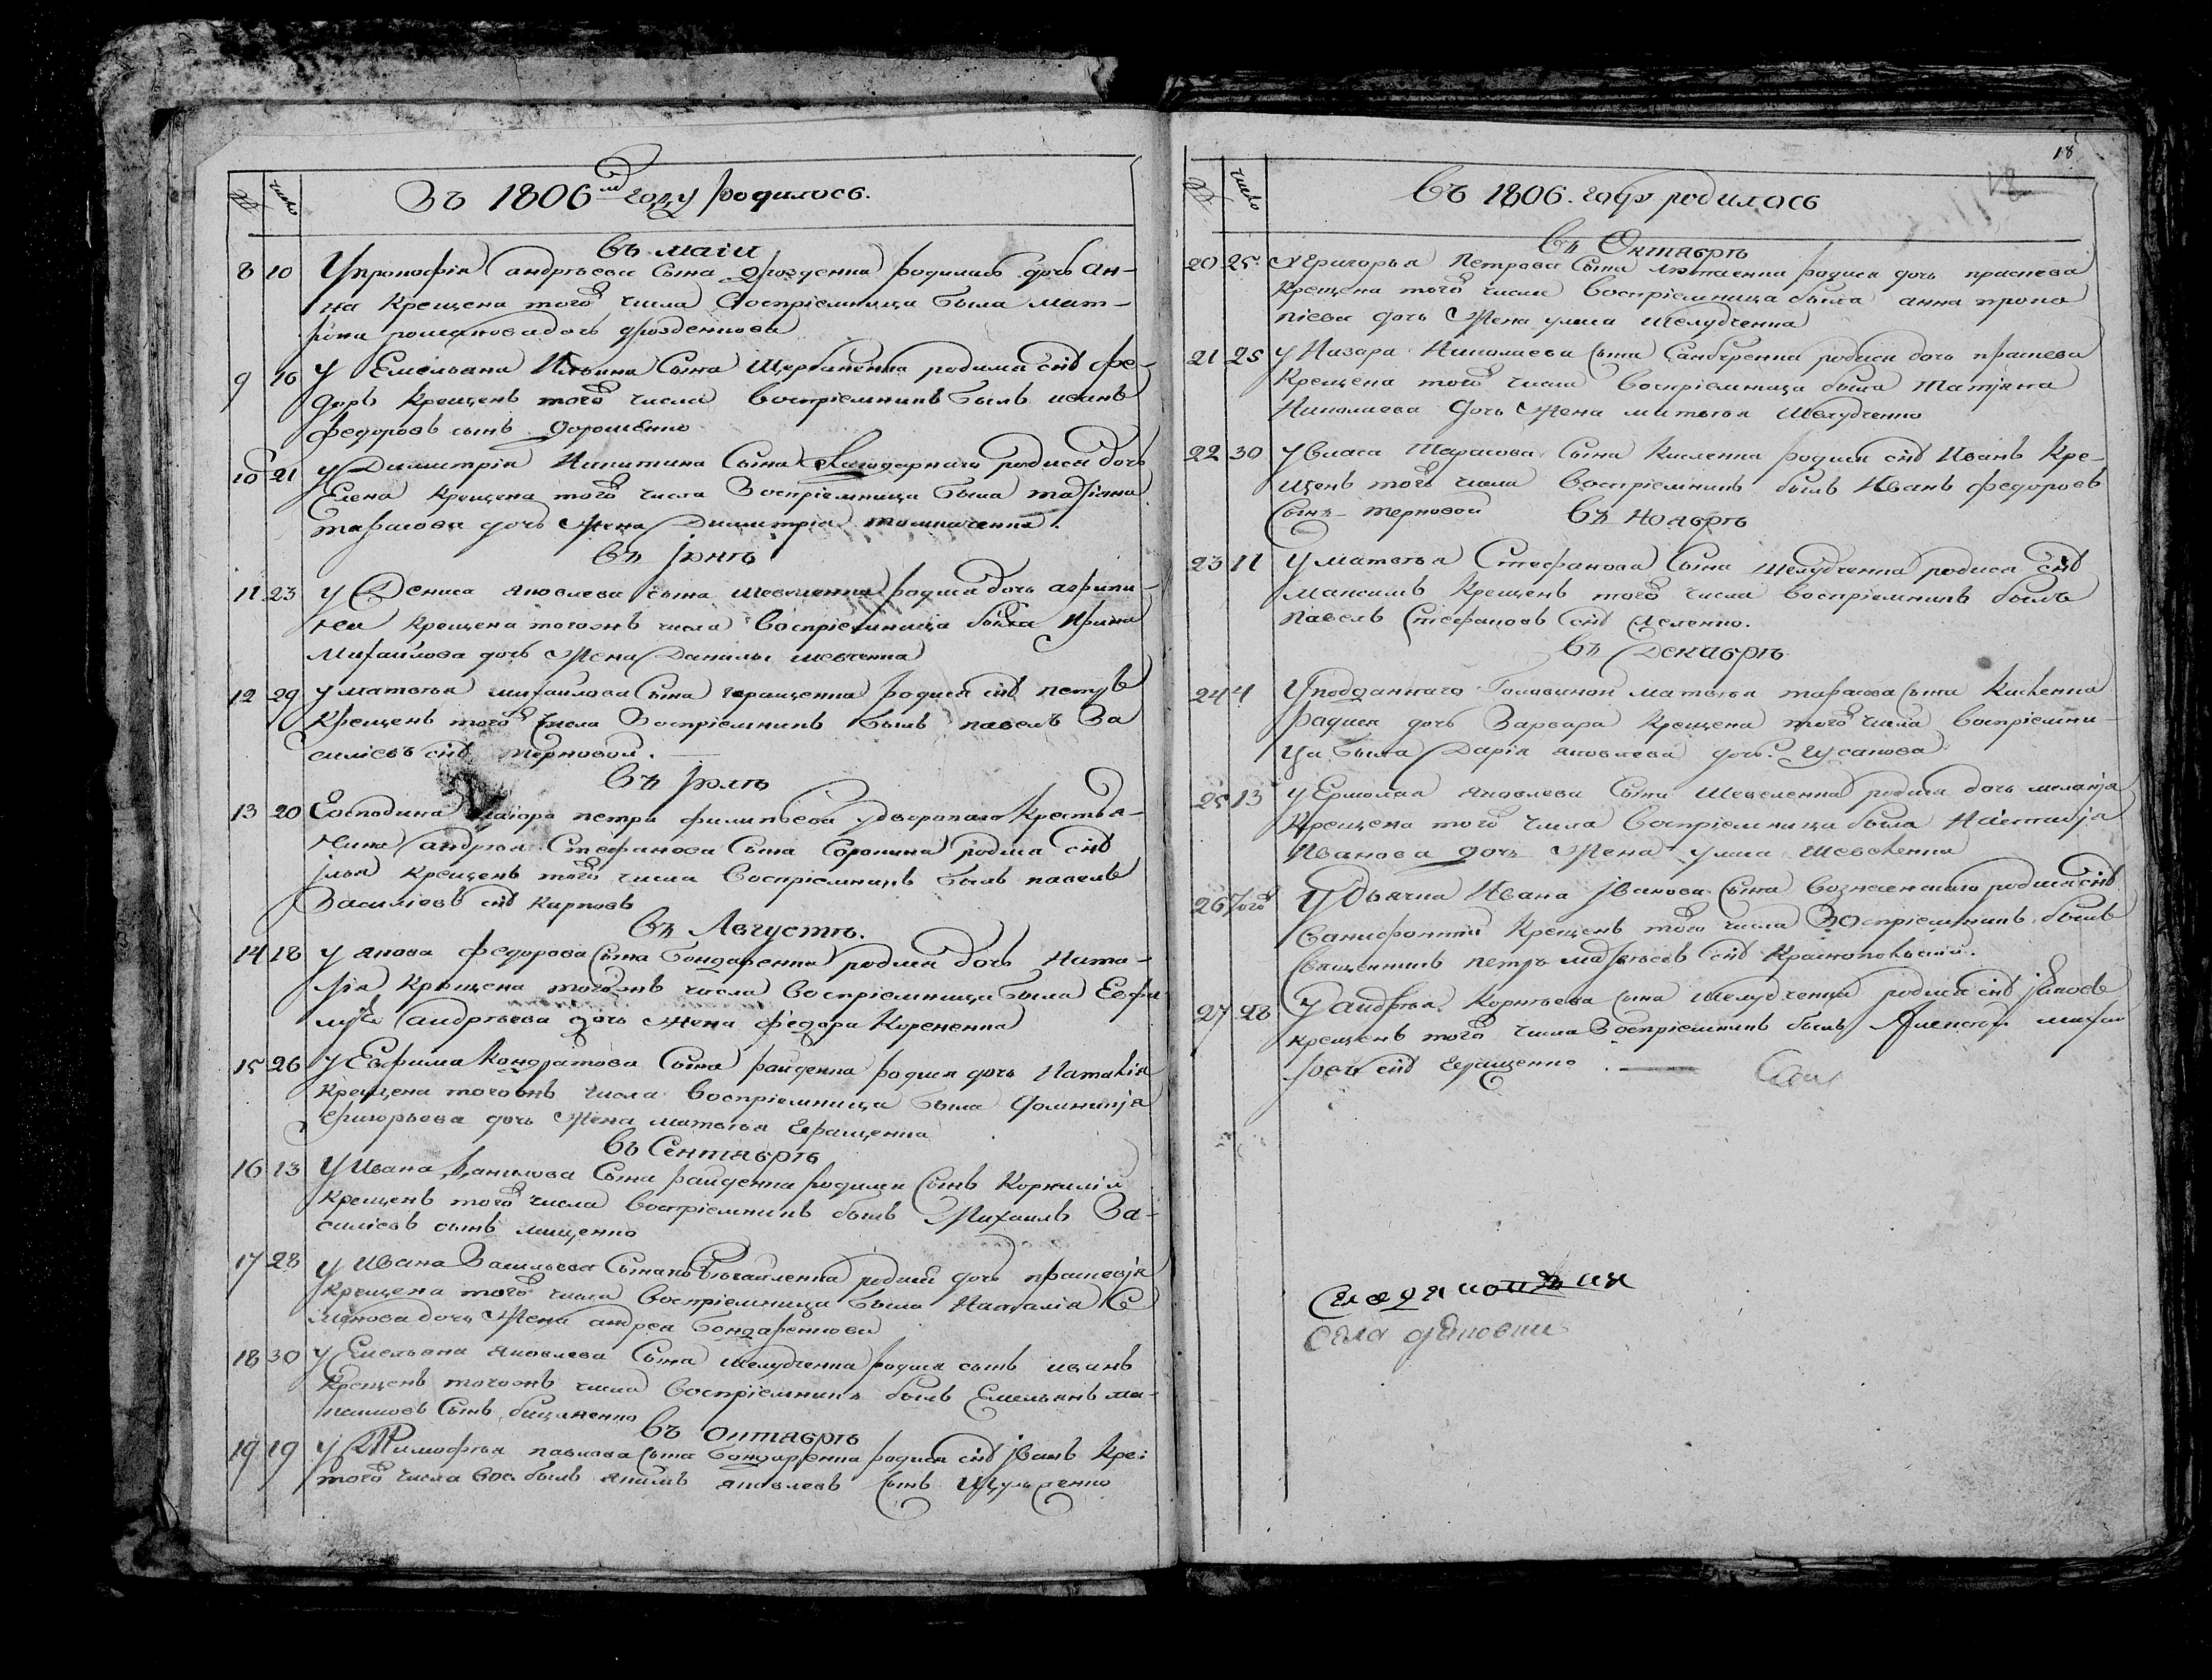 Въ 1806м году родилось.
№ число
въ маіи
8 10 У прокофія андрѣева сына дрозденка родилась дочь ан-
на крещена того числа воспріемница была мат-
рона романова дочь дрозденкова
9 16 У Емельяна Ильина сына Щербаненка родился снъ фе-
доръ крещенъ того числа воспріемникъ былъ иванъ
федоровъ сынъ дорошенко
10 21 У Димитрія Никитина сына родися дочь
Елена крещена того числа воспріемница была татіяна
тарасова дочь жена Димитрія толмаченка.
въ іюнѣ
11 23 У Дениса яковлева сына шевченка родися дочь агрипи-
на крещена тогожъ числа воспріемница была Ирина
Михаилова дочь жена Данилы шевченка
12 29 У матвѣя михаилова сына геращенка родися снъ петръ
крещенъ того числа воспріемникъ былъ павелъ Ва
силіевъ снъ терновой.
въ іюлѣ
13 20 Господина маіора петра филипьева у двороваго крестья-
нина андрея Стефанова сына Сорокина родися снъ
ілья крещенъ того числа воспріемникъ былъ павелъ
Василіевъ снъ Карповъ
въ Августѣ.
14 18 У якова федорова сына бондаренка родися дочь Ната-
лія крещена тогожъ числа воспріемница была Евфи-
мія андрѣева дочь жена федора Корененка
15 26 У Евфима Кондратова сына райденка родися дочь Наталія
крещена тогожъ числа воспріемница была Домникія
григорьева дочь жена матвѣя Геращенка
въ Сентябрѣ
16 13 У Ивана Данилова сына райденка родился сынъ Корнилій
крещенъ того числа воспріемникъ былъ Михаилъ Ва-
силіевъ сынъ мищенко
17 28 У Ивана Васильева сына родися дочь праскевія
крещена того числа воспріемница была Наталіа Се
менова дочь жена андрея бондаренкова
18 30 У Емельяна яковлева сына шелудченка родися сынъ иванъ
крещенъ тогожъ числа воспріемникъ былъ Емельянъ ма-
ксимовъ сынъ
въ октябрѣ
19 19 У Тимофѣя павлова сына бондаренка родися снъ іванъ кре:
того числа вос: былъ якимъ яковлевъ сынъ
18
Въ 1806. году родилось
№ число
въ Октябрѣ
20 25 У Григорья Петрова сына родися дочь праскева
крещена того числа воспріемница была анна проко
піева дочь жена шелудченка
21 25 У Назара Николаева сына родися дочь праскева
крещена того числа воспріемница была татіяна
Николаева дочь жена матвѣя Шелудченко
22 30 У власа Тарасова сына Кисленка родися снъ Иванъ кре-
щенъ того числа воспріемникъ былъ Иванъ федоровъ
сынъ терновой
въ ноябрѣ
23 11 У матвѣя Стефанова сына шелудченка родися снъ
Максимъ крещенъ того числа воспріемникъ былъ
Павелъ Стефановъ снъ
въ Декабрѣ
24 4 У подданнаго Головиной матвѣя тарасова сына Кисленка
родися дочь Варвара крещена того числа воспріемни-
ца была Дарія яковлева дочь
25 13 У Ермолая яковлева сына родися дочь меланія
крещена того числа воспріемница была Настасія
Иванова дочь жена
26 того У Дьячка Ивана іванова сына вознесенского родился снъ
крещенъ того числа воспріемникъ былъ
священникъ петръ матвѣевъ снъ Краснопольскій.
27 28 У андрѣя Корнѣева сына шелудченка родися снъ іаковъ
крещенъ того числа воспріемникъ былъ Алексѣй михаи
ловъ снъ геращенко.